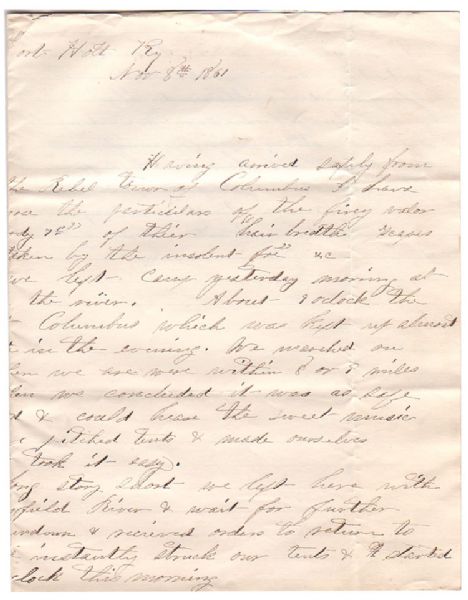 ort Holt Ky.
Nov 8th 1861
Having arrived safely from
the Rebel town of Columbus I have
the particulars of the firey valor
of thier "hair breth scapes
taken by the insolent foe" &c
we left camp yesterday morning at
the river. About 9 oclock the
Columbus which was kept up almost
in the evening. We marched on
en we were within 8 or 9 miles
en we concluded it was as safe
d & could hear the sweet music
pitched tents & made ourselves
took it easy.
ong story short we left here with
yfield River & wait for further
undown & recieved orders to return to
instantly struck our tents & started
clock this morning